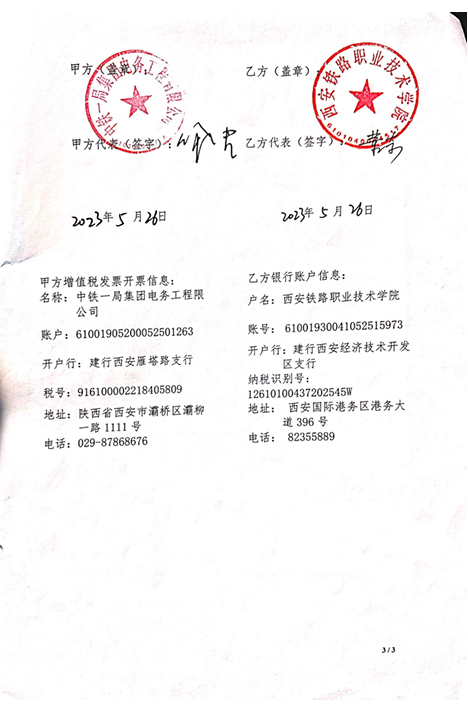 甲方（盖章）：
乙方（盖章）：
中铁一局集团电务工程有限公司
西安铁路职业技术学院
甲方代表（签字）：
乙方代表（签字）：
2023年5月26日
2023年5月26日
甲方增值税发票开票信息：
名称：中铁一局集团电务工程有限
公司
账户：61001905200052501263
开户行：建行西安雁塔路支行
税号：916100002218405809
地址：陕西省西安市灞桥区灞柳
一路1111号
电话：029-87868676
乙方银行账户信息：
户名：西安铁路职业技术学院
账号：61001930041052515973
开户行：建行西安经济技术开发
区支行
纳税识别号：
12610100437202545W
地址：西安国际港务区港务大
道396号
电话：82355889
3/3